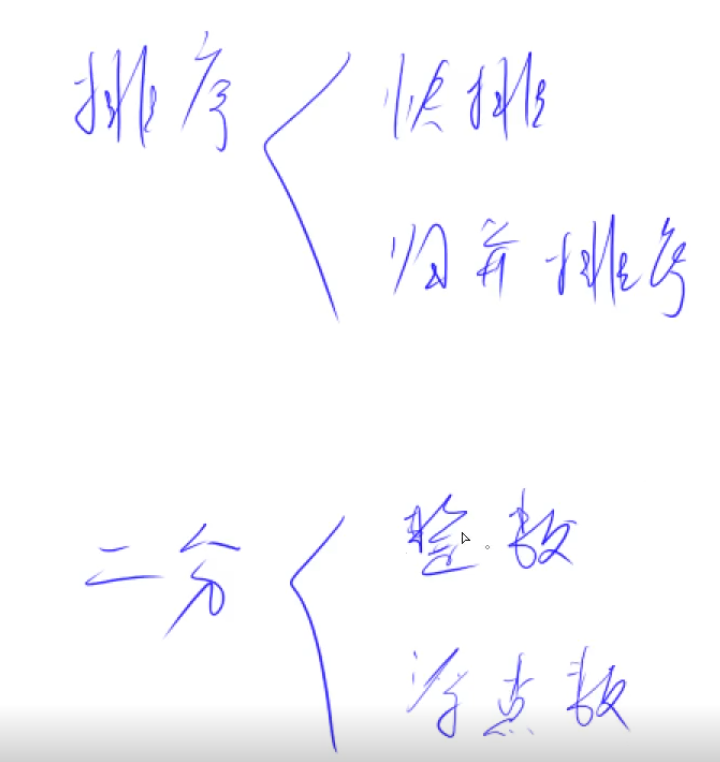 排序
快排
归并排序
二分
整数
浮点数